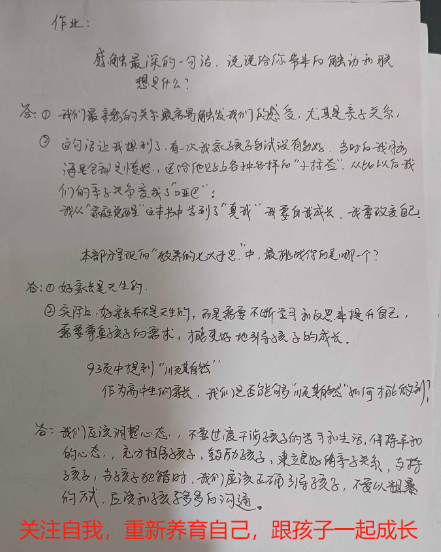 作业:
感触最深的一句话，说说给你带来的触动和联
想是什么?
答:① 我们最亲密的关系最容易触发我们的感受，尤其是亲子关系.
② 这句话让我想到了,有一次我家孩子考试没有考好，当时的我
满是全部是愤怒，还给他贴上各种各样的"小标签"，从此以后我
们的亲子关系变成了"哑巴";
我从"家庭觉醒"这本书中看到了"真我"我要自我成长，我要改变自己.
本部分呈现的"教养的七大迷思"中,最挑战你的是哪一个?
答:① 好家长是天生的.
② 实际上,好家长不是天生的,而是需要不断学习和反思来提升自己,
需要尊重孩子的需求，才能更好地引导孩子的成长.
93页中提到"顺其自然"
作为高中生的家长，我们是否能够"顺其自然"如何才能做到?
答: 我们应该调整心态,不要过度干涉孩子的学习和生活,保持平和
的心态,充分相信孩子,鼓励孩子，建立良好的亲子关系,支持
孩子,当孩子犯错时,我们应该正确引导孩子,不要以粗暴
的方式,应该和孩子多多的沟通。
关注自我，重新养育自己，跟孩子一起成长